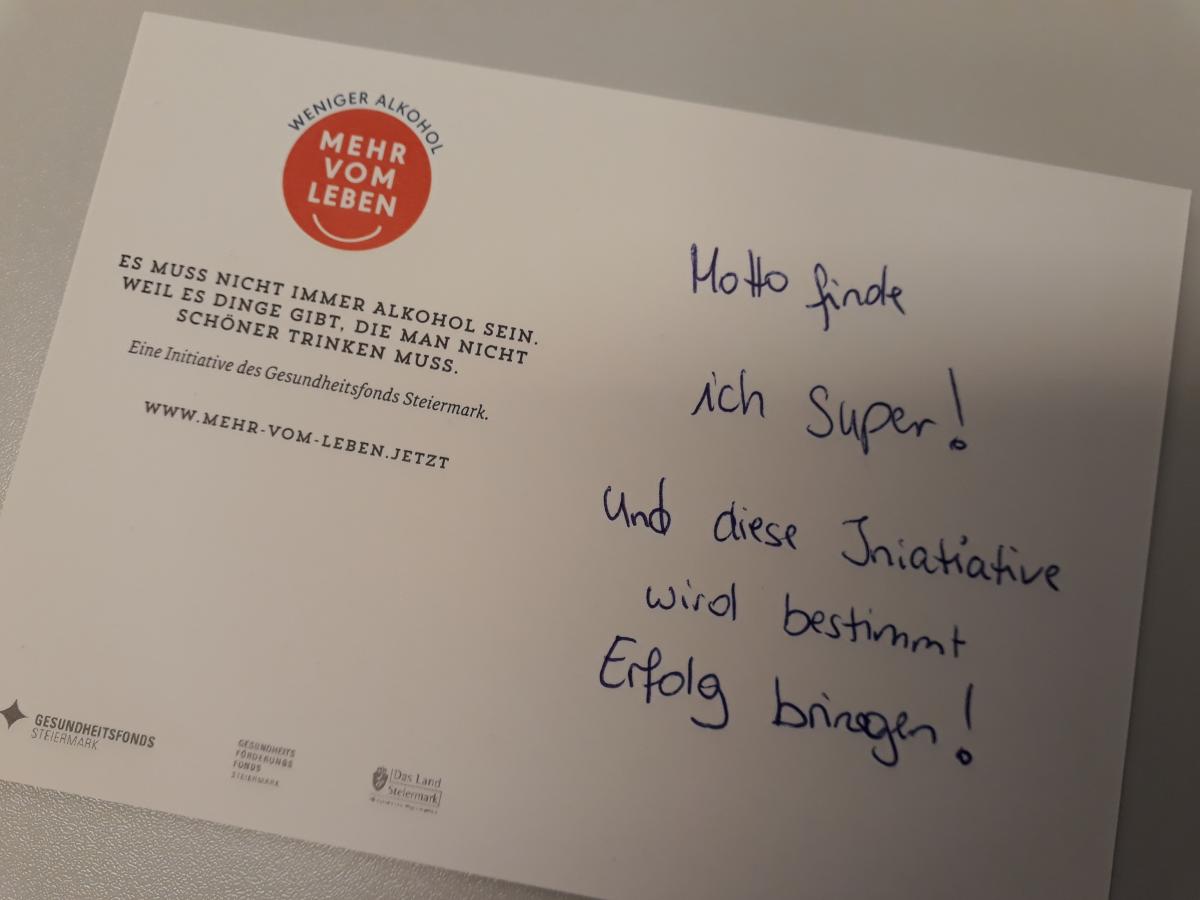 WENIGER ALKOHOL
MEHR
VOM
LEBEN
ES MUSS NICHT IMMER ALKOHOL SEIN.
WEIL ES DINGE GIBT, DIE MAN NICHT
SCHÖNER TRINKEN MUSS.
Eine Initiative des Gesundheitsfonds Steiermark.
WWW.MEHR-VOM-LEBEN.JETZT
Motto finde
ich Super!
Und diese Iniatiative
wird bestimmt
Erfolg bringen!
GESUNDHEITSFONDS
STEIERMARK
GESUNDHEITS
FÖRDERUNGS
FONDS
STEIERMARK
Das Land
Steiermark